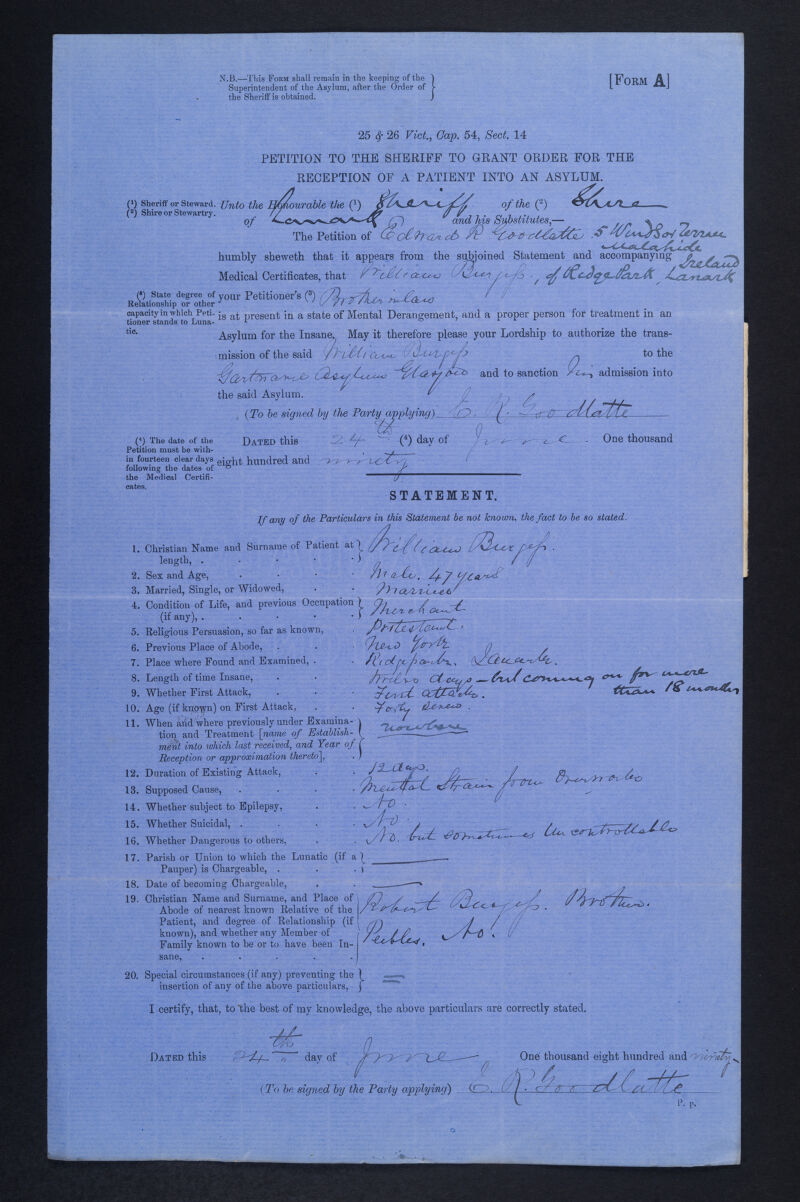 N.B.—This Form shall remain in the keeping of the
Superintendent of the Asylum, after the Order of
the Sheriff is obtained.
[Form A]
25 & 26 Vict., Cap. 54, Sect. 14
PETITION TO THE SHERIFF TO GRANT ORDER FOR THE
RECEPTION OF A PATIENT INTO AN ASYLUM.
(1) Sheriff or Steward.
(2) Shire or Stewartry.
Unto the Honourable the (1) Sheriff of the (2) Shire
of Lanark and his Substitutes,—
The Petition of Edward R Goodlatte 5 Windsor Terrace
Malahide
Ireland
humbly sheweth that it appears from the subjoined Statement and accompanying
Medical Certificates, that William Burgess, of Ridge Park, Lanark
(3) State degree of Relationship or other capacity in which Petitioner stands to Lunatic.
your Petitioner's (3) Brother in law
is at present in a state of Mental Derangement, and a proper person for treatment in an
Asylum for the Insane, May it therefore please your Lordship to authorize the trans-
mission of the said William Burgess to the
Gartnavel Asylum Glasgow and to sanction his admission into
the said Asylum.
(To be signed by the Party applying) E. R. Goodlatte
(4) The date of the Petition must be within fourteen clear days following the dates of the Medical Certificates.
Dated this 24th (4) day of June. One thousand
eight hundred and ninety
STATEMENT.
If any of the Particulars in this Statement be not known, the fact to be so stated.
1. Christian Name and Surname of Patient at length, . William Burgess.
2. Sex and Age, Male. 47 years
3. Married, Single, or Widowed, Married
4. Condition of Life, and previous Occupation (if any), . Merchant
5. Religious Persuasion, so far as known, Protestant.
6. Previous Place of Abode, New York
7. Place where Found and Examined, . Ridgepark. Lanark.
8. Length of time Insane, days – but coming on for more
than 18 months
9. Whether First Attack, First attack.
10. Age (if known) on First Attack, Forty Seven.
11. When and where previously under Examina-
tion and Treatment [name of Establish-
ment into which last received, and Year of
Reception or approximation thereto], nowhere
12. Duration of Existing Attack, 12 days.
13. Supposed Cause, Mental Strain from Overwork
14. Whether subject to Epilepsy, No.
15. Whether Suicidal, . No.
16. Whether Dangerous to others, No. but sometimes Uncontrollable
17. Parish or Union to which the Lunatic (if a
Pauper) is Chargeable, .
18. Date of becoming Chargeable,
19. Christian Name and Surname, and Place of
Abode of nearest known Relative of the
Patient, and degree of Relationship (if
known), and whether any Member of
Family known to be or to have been In-
sane, Robert Burgess. Brother.
Peebles. No.
20. Special circumstances (if any) preventing the
insertion of any of the above particulars,
I certify, that, to the best of my knowledge, the above particulars are correctly stated.
Dated this 24th day of June One thousand eight hundred and ninety
(To be signed by the Party applying) E. R. Goodlatte
P. p.